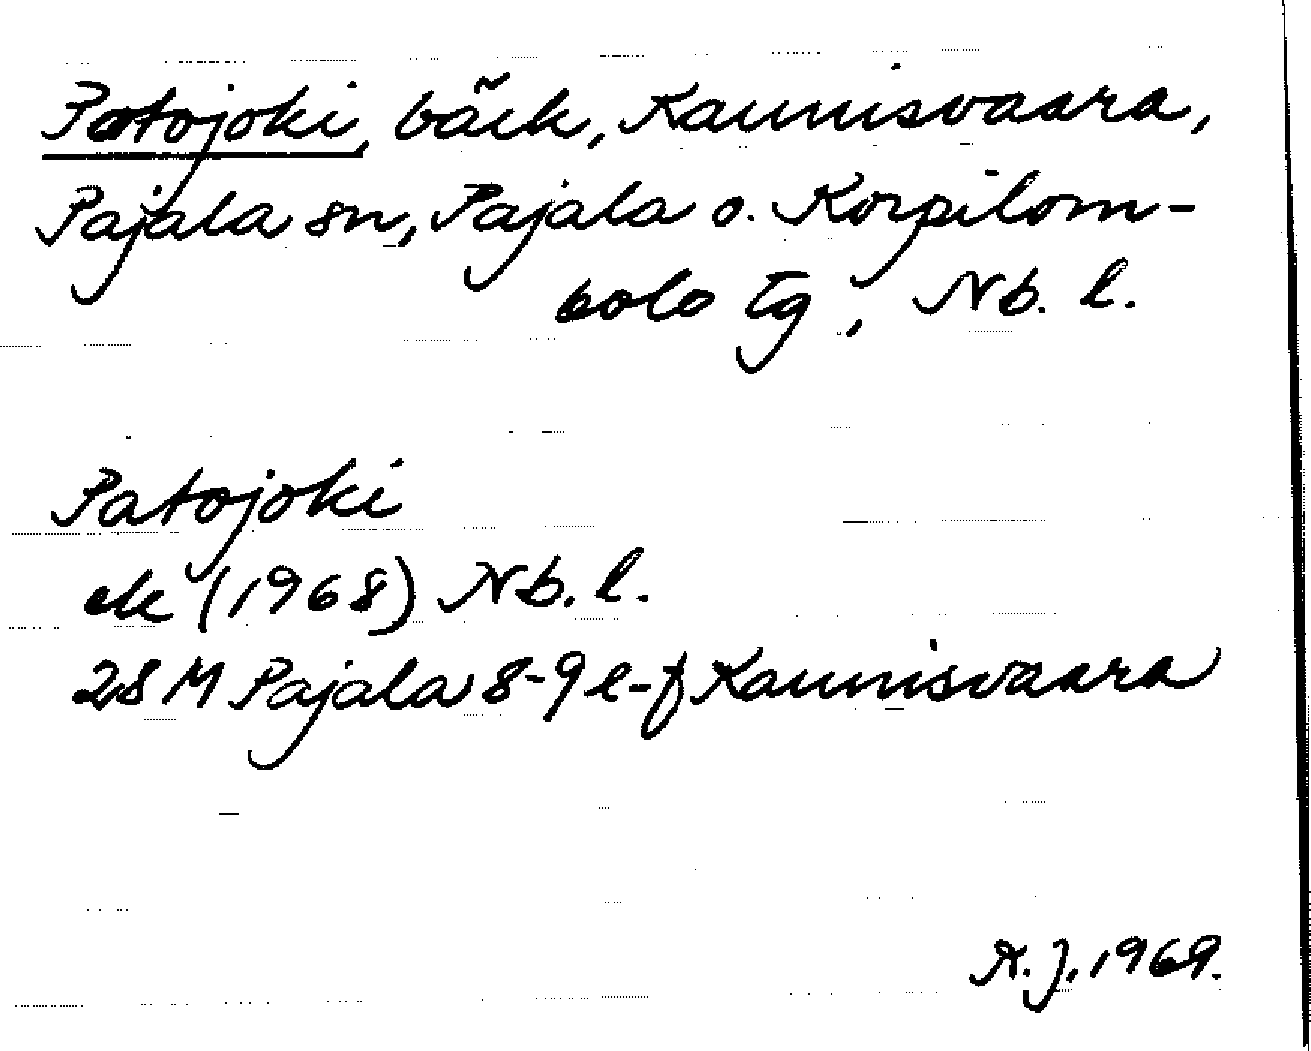 Patojoki, bäck, Kaunisvaara,
Pajala sn, Pajala o. Korpilom-
bolo tg, Nb. l.
Patojoki
ek (1968) Nb. l.
28 M Pajala 8-9 e-f Kaunisvaara
A. J. 1969.